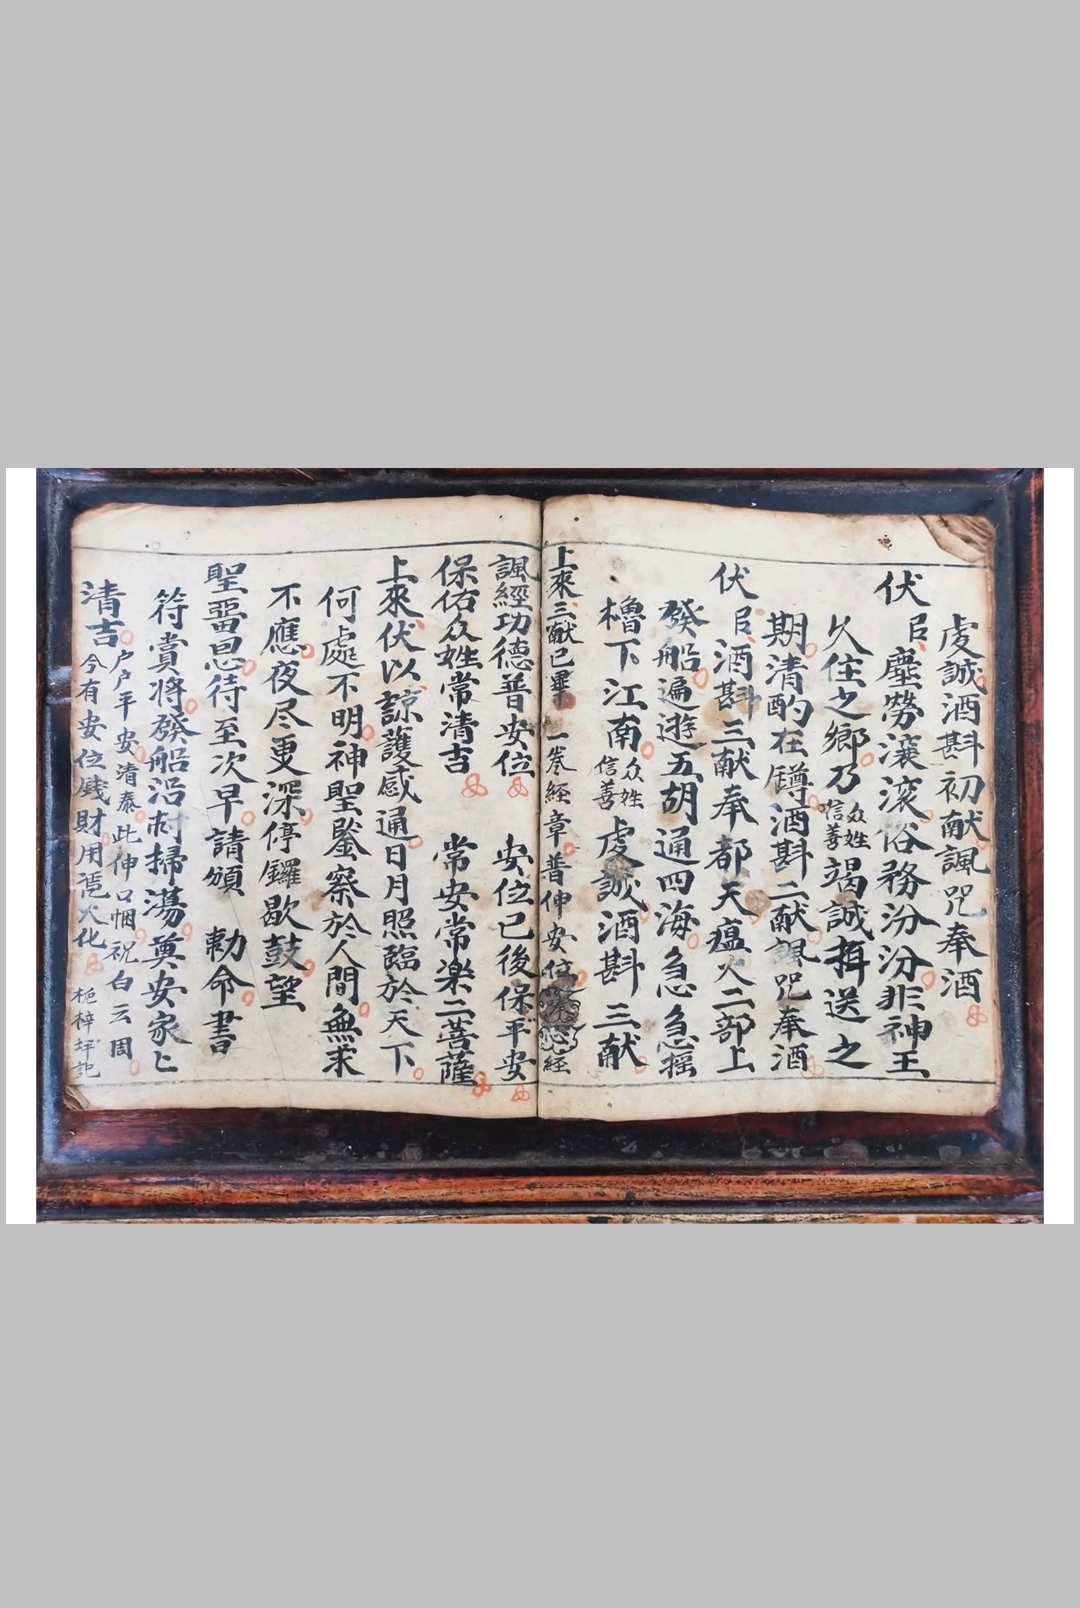 虔誠酒斟初献諷咒奉酒
伏㠯塵勞滚滚俗務汾汾非神王
久住之鄉乃众姓信善竭誠揖送之
期清酌在罇酒斟二献諷咒奉酒
伏㠯酒斟三献奉都天瘟火二部上
發船遍遊五胡通四海急急摇
櫓下江南众姓信善虔誠酒斟三献
上來三献已畢一卷經章普伸安位經
諷經功德普安位 安位已後保平安
保佑众姓常清吉 常安常楽二菩薩
上來伏以諒護感通日月照臨於天下
何處不明神聖鑒察於人間無求
不應夜尽更深停鑼歇鼓望
聖畱恩待至次早請頒 勅命書
符賞將發船沿村掃蕩奠安家㠪
清吉户户平安清泰此伸口悃祝白云周
今有安位賤財用凴火化 梓坪記